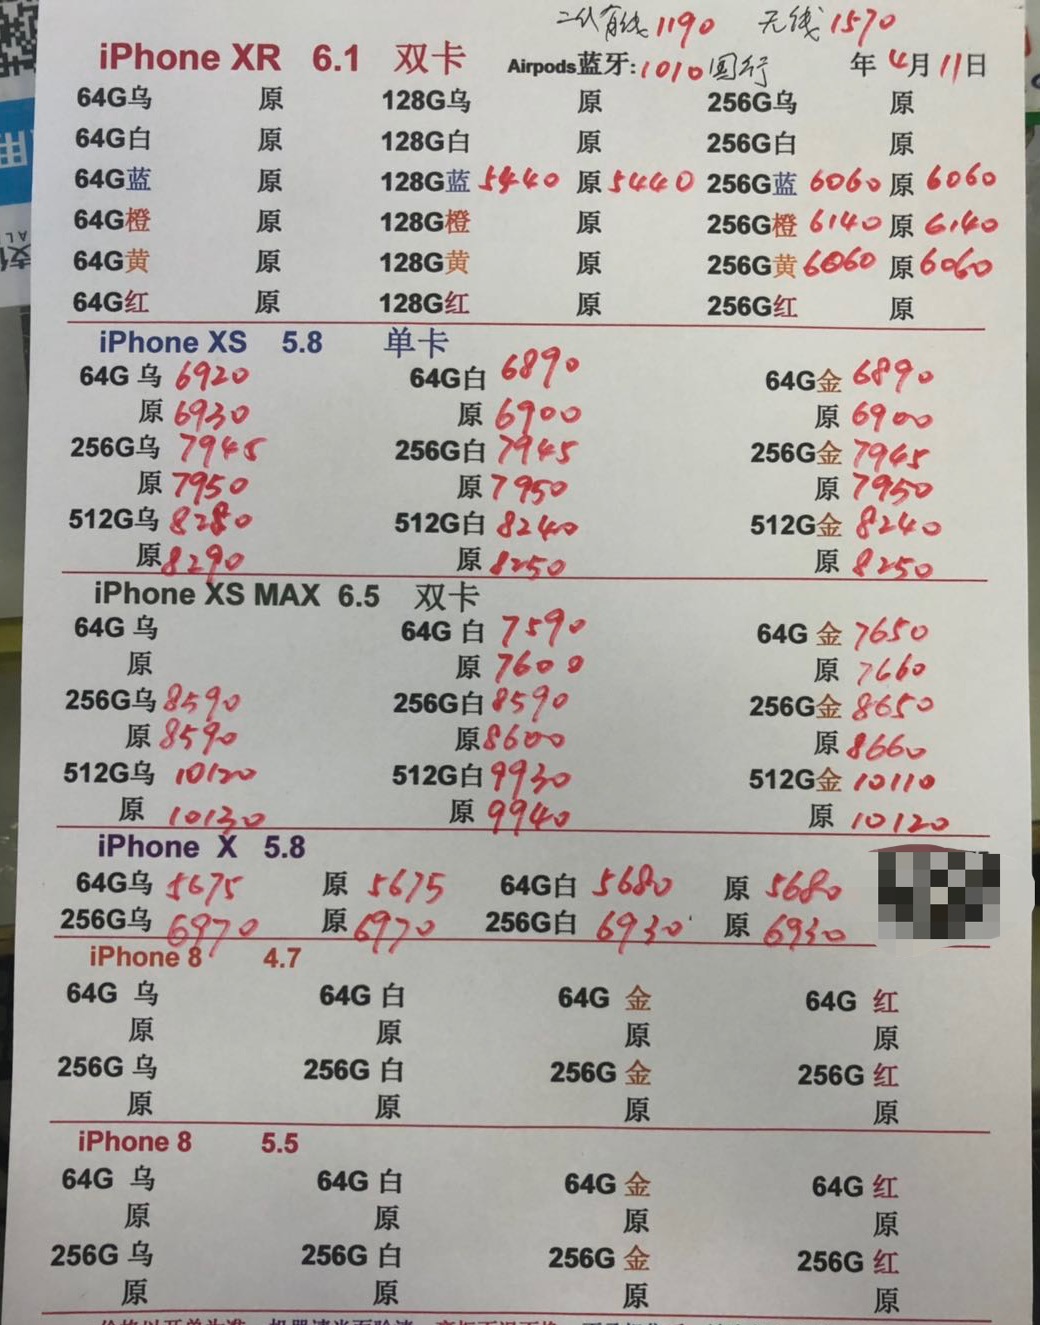 二代有线1190 无线1570
iPhone XR 6.1 双卡 Airpods蓝牙:1010国行 年4月11日
64G乌 原 128G乌 原 256G乌 原
64G白 原 128G白 原 256G白 原
64G蓝 原 128G蓝 5440 原 5440 256G蓝 6060 原 6060
64G橙 原 128G橙 原 256G橙 6140 原 6140
64G黄 原 128G黄 原 256G黄 6060 原 6060
64G红 原 128G红 原 256G红 原
iPhone XS 5.8 单卡
64G 乌 6920 64G白 6890 64G金 6890
原 6930 原 6900 原 6900
256G乌 7945 256G白 7945 256G金 7945
原 7950 原 7950 原 7950
512G乌 8280 512G白 8240 512G金 8240
原 8290 原 8250 原 8250
iPhone XS MAX 6.5 双卡
64G 乌 64G 白 7590 64G 金 7650
原 原 7600 原 7660
256G乌 8590 256G白 8590 256G金 8650
原 8590 原 8600 原 8660
512G乌 10120 512G白 9930 512G金 10110
原 10130 原 9940 原 10120
iPhone X 5.8
64G乌 5675 原 5675 64G白 5680 原 5680
256G乌 6970 原 6970 256G白 6930 原 6930
iPhone 8 4.7
64G 乌 64G 白 64G 金 64G 红
原 原 原 原
256G 乌 256G 白 256G 金 256G 红
原 原 原 原
iPhone 8 5.5
64G 乌 64G 白 64G 金 64G 红
原 原 原 原
256G 乌 256G 白 256G 金 256G 红
原 原 原 原